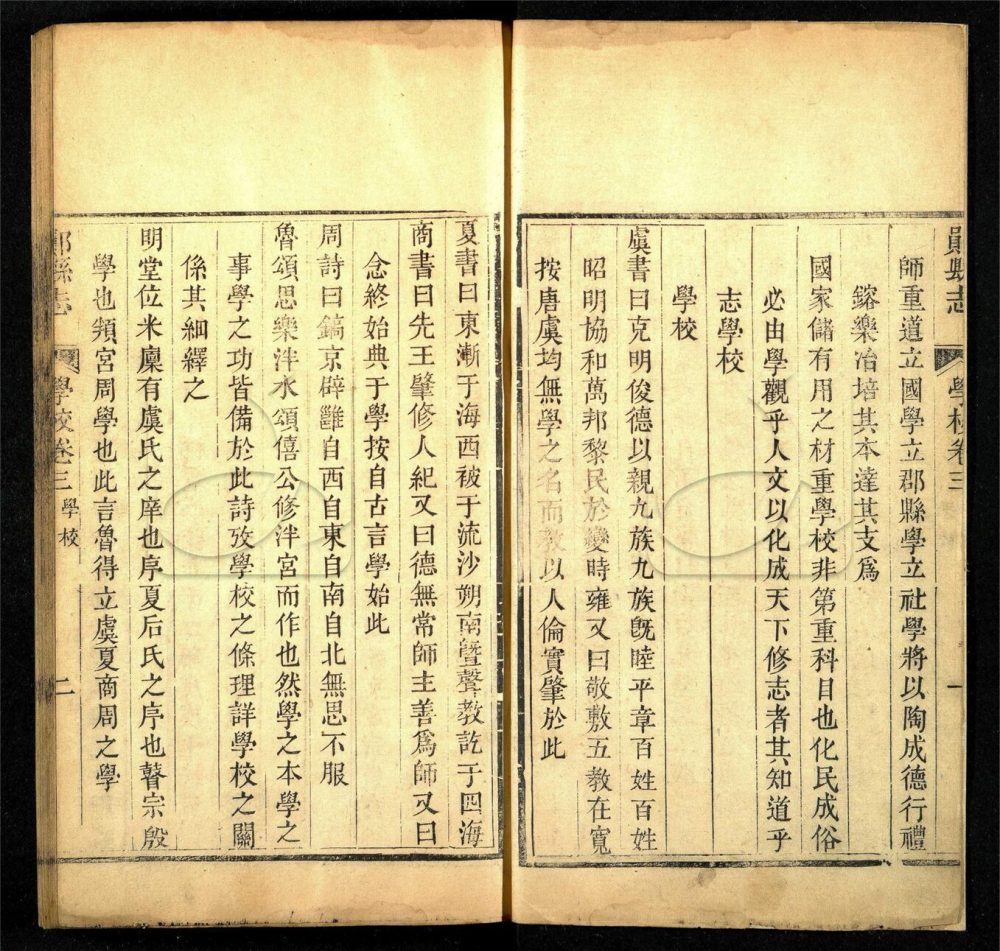 鄖縣志 學校卷三 一
師重道立國學立郡縣學立社學將以陶成德行禮
鎔樂冶培其本達其支爲
國家儲有用之材重學校非第重科目也化民成俗
必由學觀乎人文以化成天下修志者其知道乎
志學校
學校
虞書曰克明俊德以親九族九族旣睦平章百姓百姓
昭明協和萬邦黎民於變時雍又曰敬敷五教在寬
按唐虞均無學之名而教以人倫實肇於此
夏書曰東漸于海西被于流沙朔南曁聲教訖于四海
商書曰先王肇修人紀又曰德無常師主善爲師又曰
念終始典于學按自古言學始此
周詩曰鎬京辟雝自西自東自南自北無思不服
魯頌思樂泮水頌僖公修泮宮而作也然學之本學之
事學之功皆備於此詩攷學校之條理詳學校之關
係其細繹之
明堂位米廩有虞氏之庠也序夏后氏之序也瞽宗殷
學也頖宮周學也此言魯得立虞夏商周之學
鄖縣志 學校卷三 學校 二